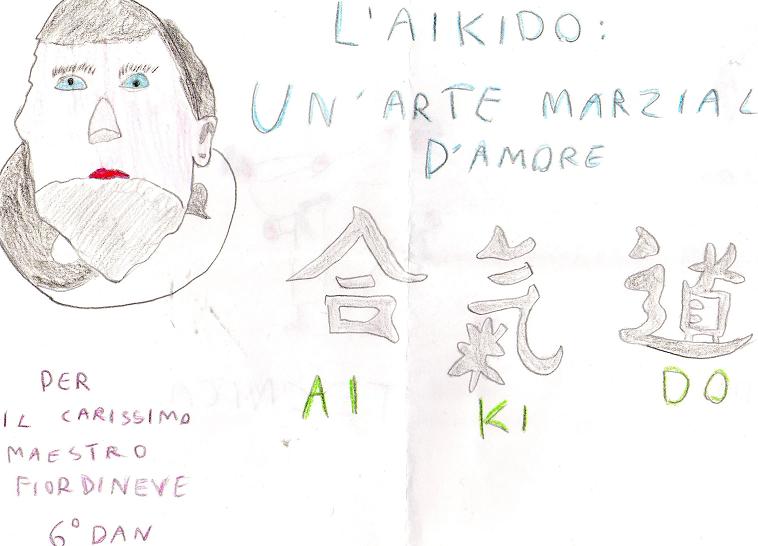 L'AIKIDO:
UN'ARTE MARZIAL
D'AMORE
合 氣 道
AI KI DO
PER
IL CARISSIMO
MAESTRO
FIORDINEVE
6° DAN